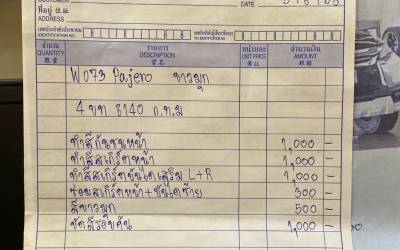 CUSTOMER
ที่อยู่ 住址
ADDRESS
DATE
เลขประจำตัวประชาชน
IDENTIFICATION NO.
เลขประจำตัวผู้เสียภาษี
TAX IDENTIFICATION NO.
จำนวน รายการ หน่วยละ จำนวนเงิน
QUANTITY DESCRIPTION UNIT PRICE AMOUNT
W073 Pajero ขาวมุก
4 ขท 8140 ก.ท.ม
ทำสีกันชนหน้า 1,000 –
ทำสีสเกิร์ตหน้า 1,000 –
ทำสีสเกิร์ตบันไดเสริม L+R 1,000 –
ซ่อมสเกิร์ตหน้า+บันไดซ้าย 300 –
สีขาวมุก 500 –
ขัดสีรอบคัน 1,000 –